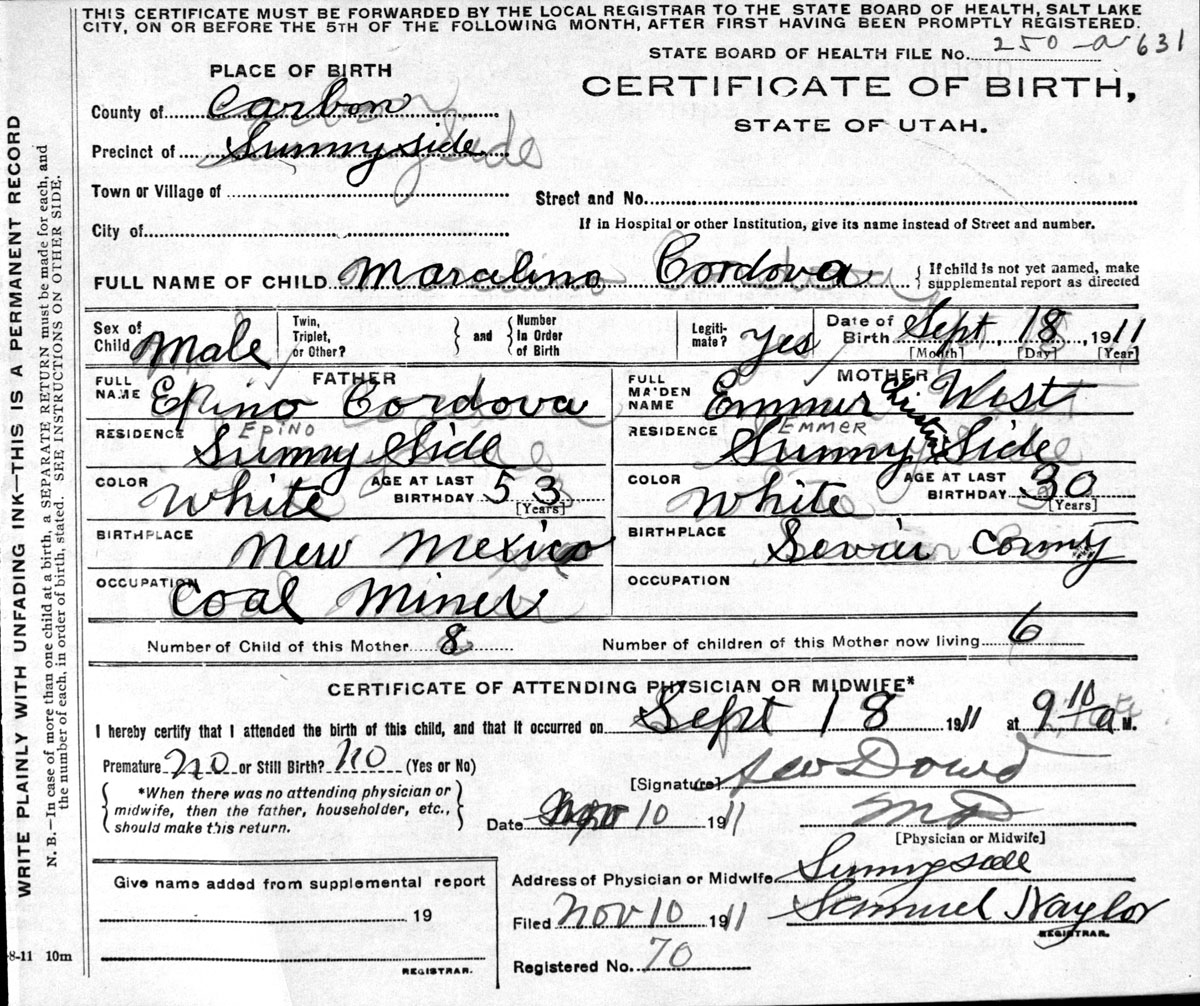 THIS CERTIFICATE MUST BE FORWARDED BY THE LOCAL REGISTRAR TO THE STATE BOARD OF HEALTH, SALT LAKE
CITY, ON OR BEFORE THE 5TH OF THE FOLLOWING MONTH, AFTER FIRST HAVING BEEN PROMPTLY REGISTERED.
STATE BOARD OF HEALTH FILE No. 250-a 631
PLACE OF BIRTH
CERTIFICATE OF BIRTH,
STATE OF UTAH.
County of Carbon
Precinct of Sunnyside
Town or Village of
Street and No.
City of
If in Hospital or other Institution, give its name instead of Street and number.
FULL NAME OF CHILD Maralino Cordova { If child is not yet named, make supplemental report as directed
Sex of Child Male
Twin, Triplet, or Other? } and { Number In Order of Birth
Legiti-mate? Yes
Date of Birth Sept 18, 1911
[Month] [Day] [Year]
FATHER
FULL NAME Epino Cordova
Epino
RESIDENCE Sunny Side
COLOR White
AGE AT LAST BIRTHDAY 53
[Years]
BIRTHPLACE New Mexico
OCCUPATION Coal Miner
MOTHER
FULL MAIDEN NAME Emmer West
EMMER
RESIDENCE Sunny Side
COLOR White
AGE AT LAST BIRTHDAY 30
[Years]
BIRTHPLACE Sevier County
OCCUPATION
Number of Child of this Mother 8
Number of children of this Mother now living 6
CERTIFICATE OF ATTENDING PHYSICIAN OR MIDWIFE*
I hereby certify that I attended the birth of this child, and that it occurred on Sept 18 1911 at 9 10 a M.
Premature No or Still Birth? No (Yes or No)
[Signature] Dowd
*When there was no attending physician or
midwife, then the father, householder, etc.,
should make this return.
Date Nov 10 1911
MD
[Physician or Midwife]
Give name added from supplemental report
19
REGISTRAR.
Address of Physician or Midwife Sunnyside
Filed Nov 10 1911 Samuel Naylor
REGISTRAR.
Registered No. 70
8-11 10m
WRITE PLAINLY WITH UNFADING INK—THIS IS A PERMANENT RECORD
N. B.—In case of more than one child at a birth, a SEPARATE RETURN must be made for each, and
the number of each, in order of birth, stated. SEE INSTRUCTIONS ON OTHER SIDE.